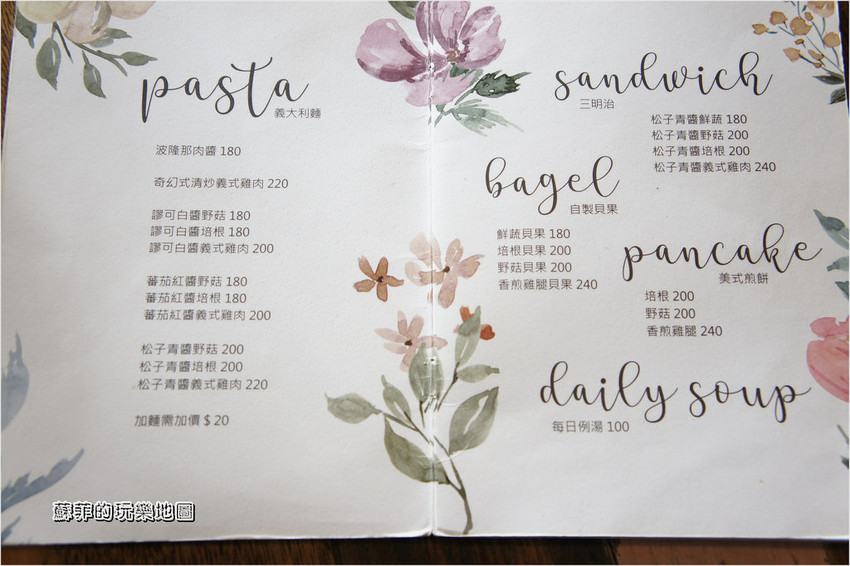 pasta
義大利麵
波隆那肉醬 180
奇幻式清炒義式雞肉 220
謬可白醬野菇 180
謬可白醬培根 180
謬可白醬義式雞肉 200
蕃茄紅醬野菇 180
蕃茄紅醬培根 180
蕃茄紅醬義式雞肉 200
松子青醬野菇 200
松子青醬培根 200
松子青醬義式雞肉 220
加麵需加價 $ 20
sandwich
三明治
松子青醬鮮蔬 180
松子青醬野菇 200
松子青醬培根 200
松子青醬義式雞肉 240
bagel
自製貝果
鮮蔬貝果 180
培根貝果 200
野菇貝果 200
香煎雞腿貝果 240
pancake
美式煎餅
培根 200
野菇 200
香煎雞腿 240
daily soup
每日例湯 100
蘇菲的玩樂地圖